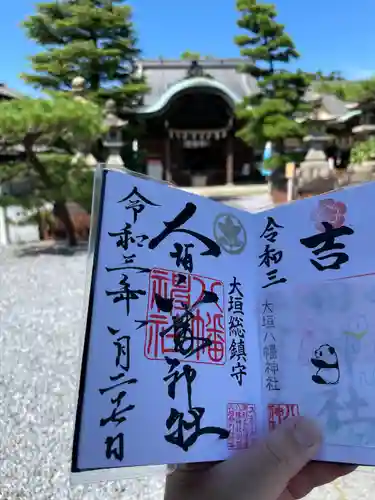 吉
令和三
大垣八幡神社
大垣総鎮守
大垣八幡神社
八幡神社
令和三年八月二十日